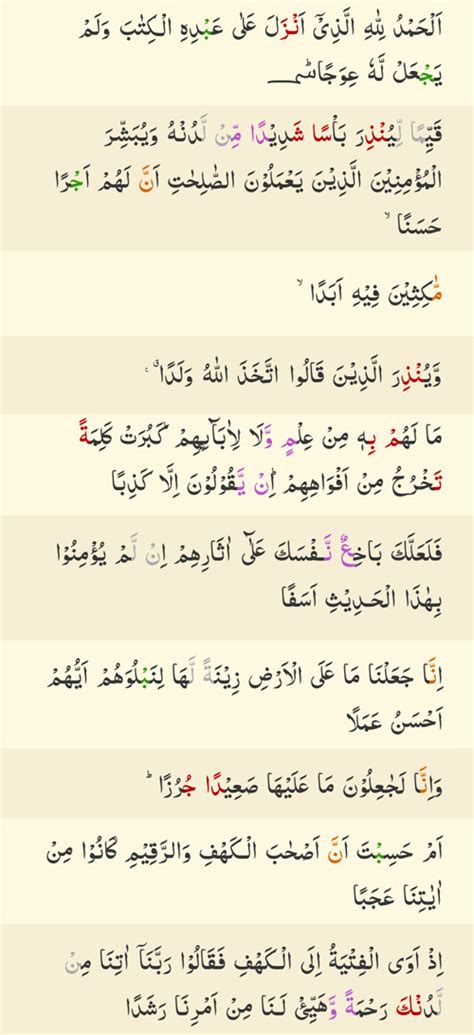 اَلۡحَمۡدُ لِلّٰهِ الَّذِىۡۤ اَنۡزَلَ عَلٰى عَبۡدِهِ الۡكِتٰبَ وَلَمۡ
يَجۡعَلْ لَّهٗ عِوَجًا ؕ سكتة
قَيِّمًا لِّيُنۡذِرَ بَاۡسًا شَدِيۡدًا مِّنۡ لَّدُنۡهُ وَيُبَشِّرَ
الۡمُؤۡمِنِيۡنَ الَّذِيۡنَ يَعۡمَلُوۡنَ الصّٰلِحٰتِ اَنَّ لَهُمۡ اَجۡرًا
حَسَنًا ۙ
مّٰكِثِيۡنَ فِيۡهِ اَبَدًا ۙ
وَّيُنۡذِرَ الَّذِيۡنَ قَالُوا اتَّخَذَ اللّٰهُ وَلَدًا ۙ
مَا لَهُمۡ بِهٖ مِنۡ عِلۡمٍ وَّلَا لِاٰبَآٮِٕهِمۡ‌ؕ كَبُرَتۡ كَلِمَةً
تَخۡرُجُ مِنۡ اَفۡوَاهِهِمۡ‌ؕ اِنۡ يَّقُوۡلُوۡنَ اِلَّا كَذِبًا
فَلَعَلَّكَ بَاخِعٌ نَّـفۡسَكَ عَلٰٓى اٰثَارِهِمۡ اِنۡ لَّمۡ يُؤۡمِنُوۡا
بِهٰذَا الۡحَـدِيۡثِ اَسَفًا
اِنَّا جَعَلۡنَا مَا عَلَى الۡاَرۡضِ زِيۡنَةً لَّهَا لِنَبۡلُوَهُمۡ اَيُّهُمۡ
اَحۡسَنُ عَمَلًا
وَاِنَّا لَجٰعِلُوۡنَ مَا عَلَيۡهَا صَعِيۡدًا جُرُزًا ؕ
اَمۡ حَسِبۡتَ اَنَّ اَصۡحٰبَ الۡـكَهۡفِ وَالرَّقِيۡمِۙ كَانُوۡا مِنۡ
اٰيٰتِنَا عَجَبًا
اِذۡ اَوَى الۡفِتۡيَةُ اِلَى الۡـكَهۡفِ فَقَالُوۡا رَبَّنَاۤ اٰتِنَا مِنۡ
لَّدُنۡكَ رَحۡمَةً وَّهَيِّئۡ لَـنَا مِنۡ اَمۡرِنَا رَشَدًا